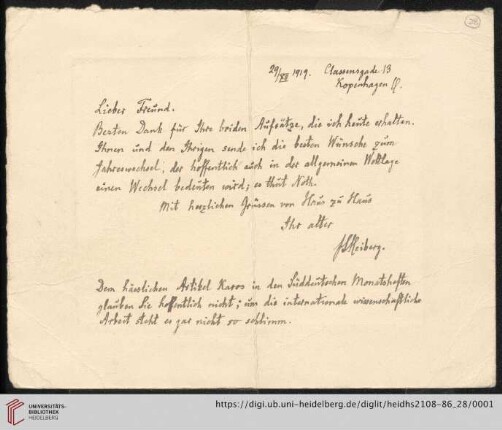 28
29/XII 1919. Classensgade 13
Kopenhagen Ø.
Lieber Freund.
Besten Dank für Ihre beiden Aufsätze, die ich heute erhalten.
Ihnen und den Ihrigen sende ich die besten Wünsche zum
Jahreswechsel, der hoffentlich auch in der allgemeinen Weltlage
einen Wechsel bedeuten wird; es thut Noth.
Mit herzlichen Grüssen von Haus zu Haus
Ihr alter
JLHeiberg.
Dem hässlichen Artikel Karos in den Süddeutschen Monatsheften
glauben Sie hoffentlich nicht; um die internationale wissenschaftliche
Arbeit steht es gar nicht so schlimm.
UNIVERSITÄTS-
BIBLIOTHEK
HEIDELBERG
https://digi.ub.uni-heidelberg.de/diglit/heidhs2108-86_28/0001